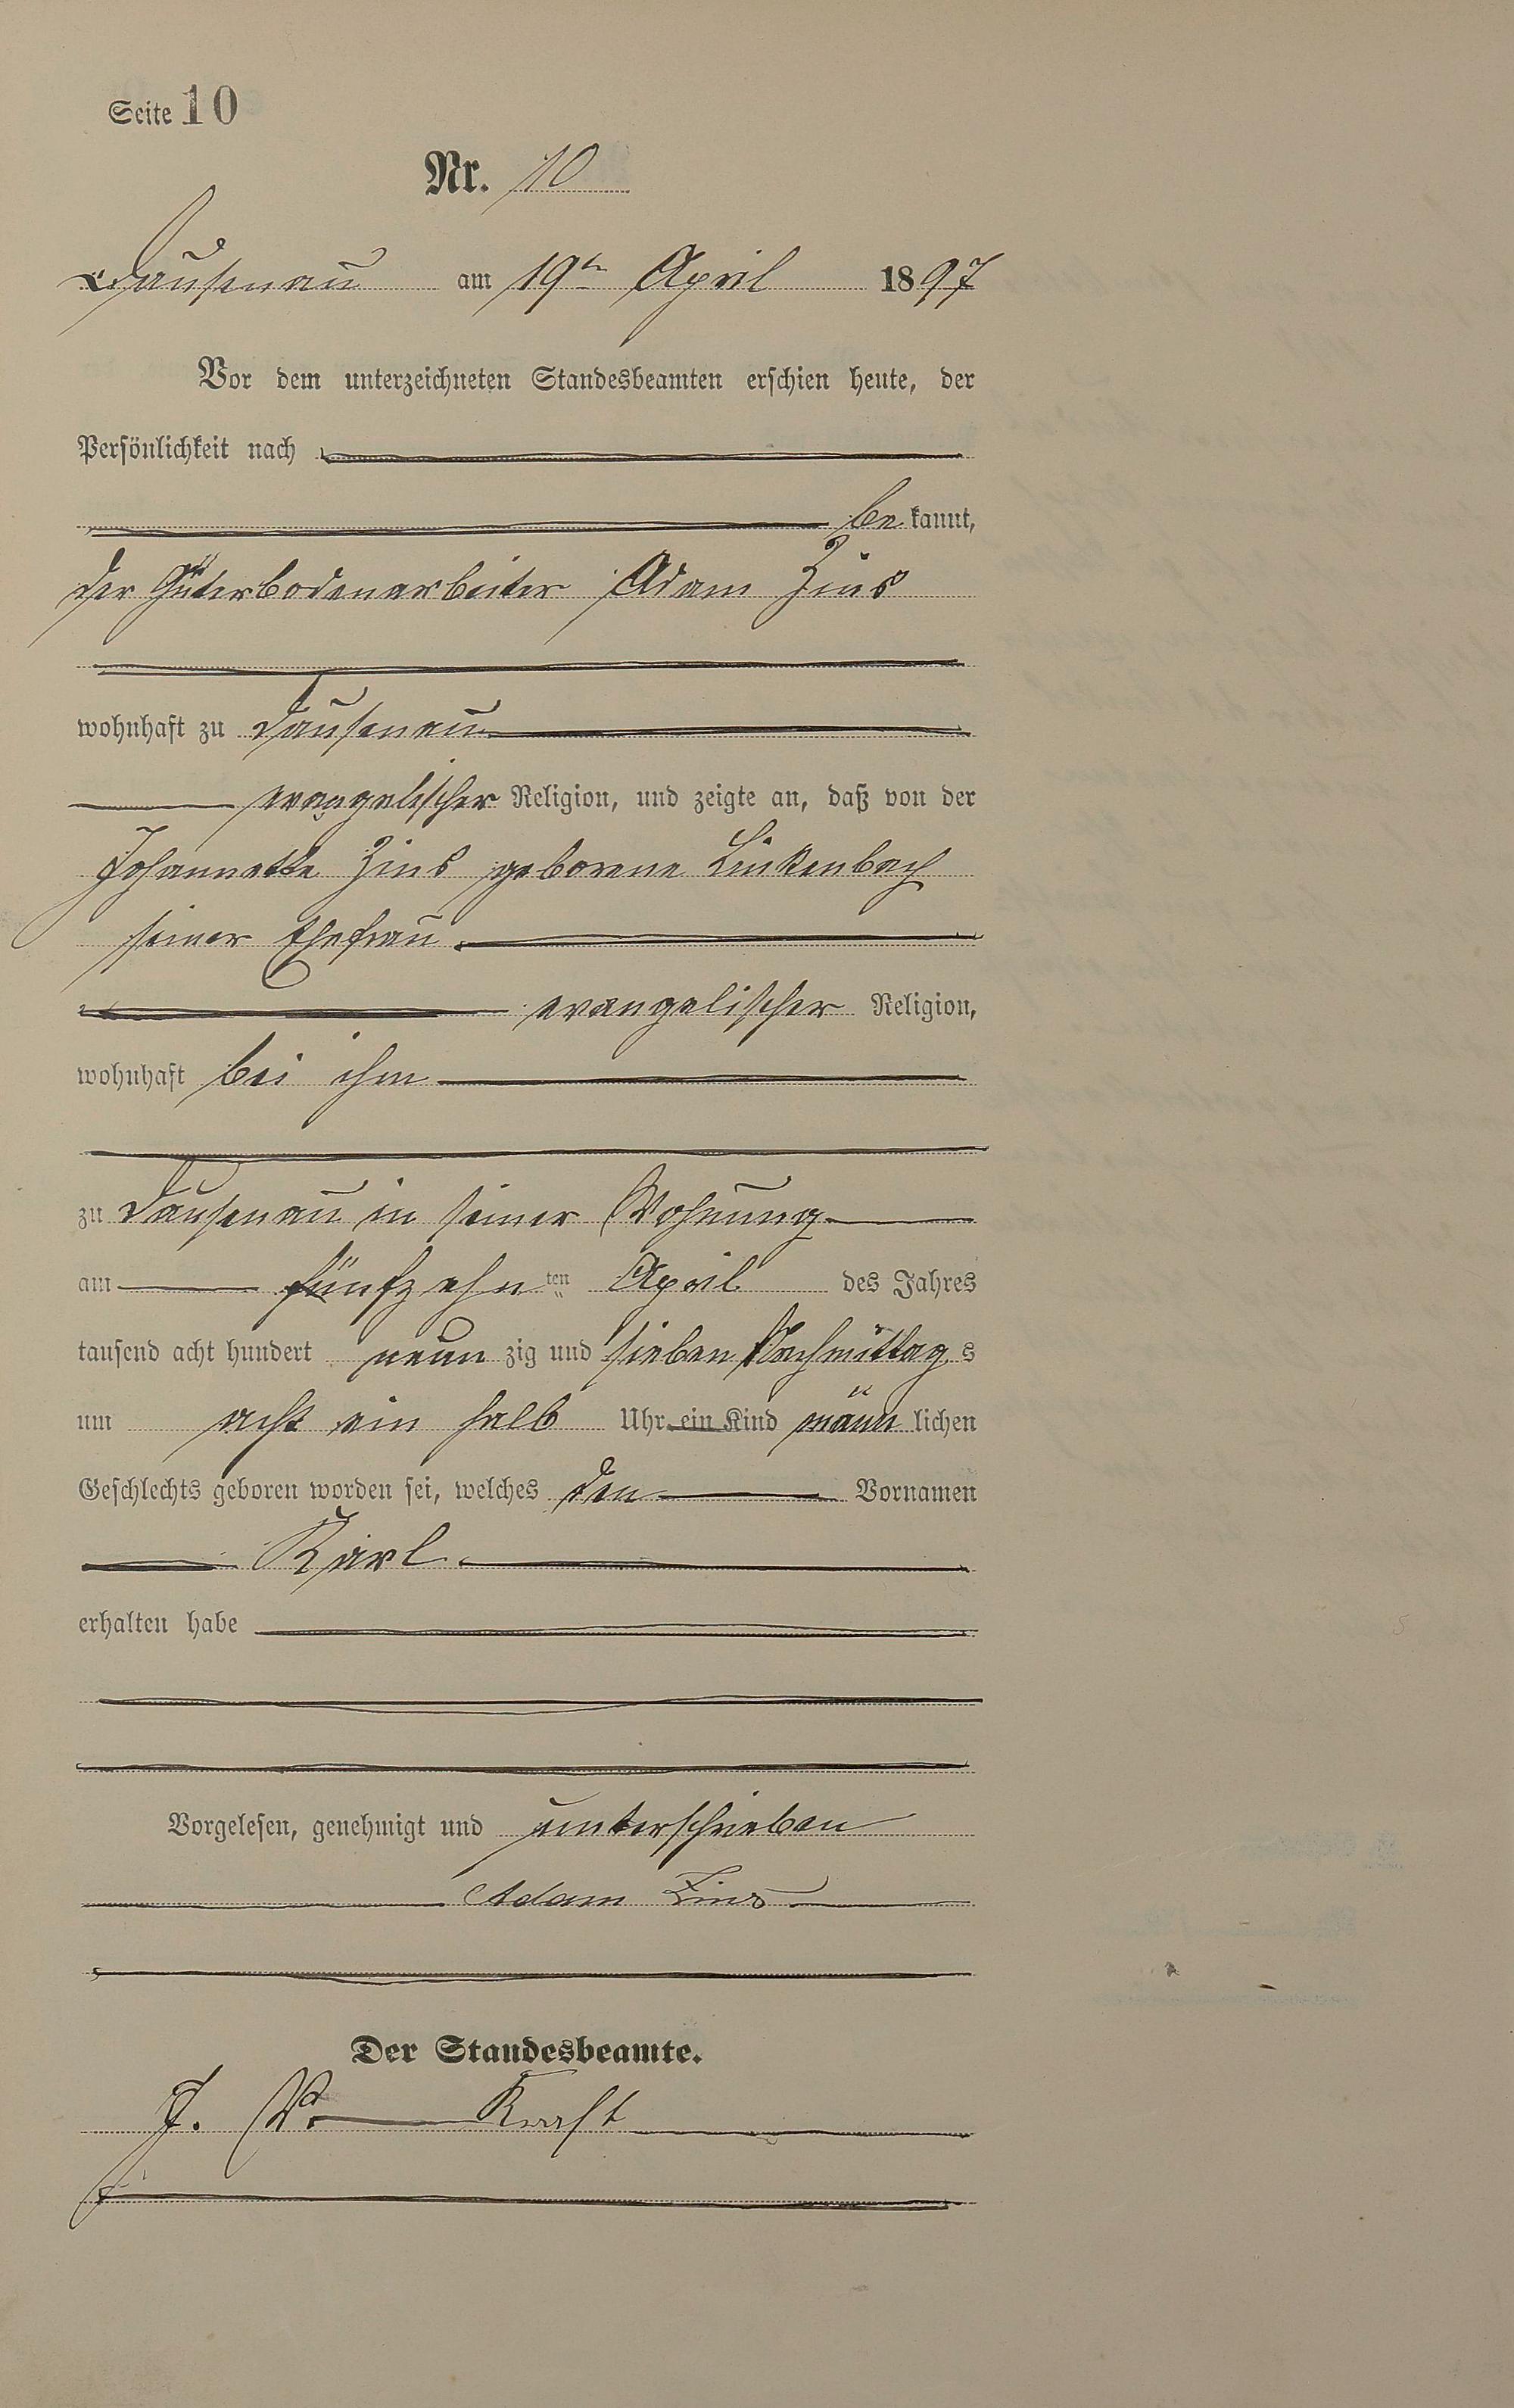 Seite 10
Nr. 10
Dausenau am 19ten April 1897
Vor dem unterzeichneten Standesbeamten erschien heute, der
Persönlichkeit nach
be kannt,
der Güterbodenarbeiter Adam Zins
wohnhaft zu Dausenau
evangelischer Religion, und zeigte an, daß von der
Johannette Zins geborene Linkenbach
seiner Ehefrau
evangelischer Religion,
wohnhaft bei ihm
zu Dausenau in seiner Wohnung
am fünfzehn ten April des Jahres
tausend acht hundert neun zig und sieben Nachmittag s
um acht ein halb Uhr ein Kind männ lichen
Geschlechts geboren worden sei, welches den Vornamen
Karl
erhalten habe
Vorgelesen, genehmigt und unterschrieben
Adam Zins
Der Standesbeamte.
J. V. Kraft